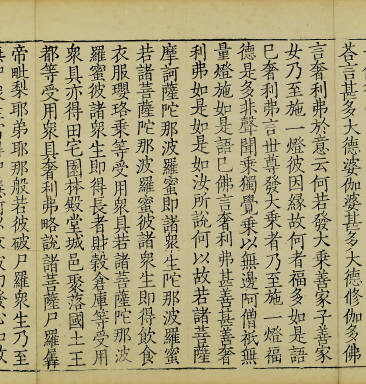 答言甚多大德婆伽婆甚多大德修伽多佛
言奢利弗於意云何若發大乘善家子善家
女乃至施一燈彼因緣故何者福多如是語
已奢利弗言世尊發大乘者乃至施一燈福
德是多非聲聞乘獨覺乘以無邊阿僧祇無
量燈施如是語已佛言奢利弗甚善甚善奢
利弗如是如是如汝所說何以故若諸菩薩
摩訶薩陀那波羅蜜即諸衆生陀那波羅蜜
若諸菩薩陀那波羅蜜彼諸衆生即得飲食
衣服瓔珞乘等受用衆具若諸菩薩陀那波
羅蜜彼諸衆生即得長者財穀倉庫等受用
衆具亦得田宅園林殿堂城邑聚落國土王
都等受用衆具奢利弗略說諸菩薩尸羅羼
帝毗梨耶弟耶那般若彼破尸羅衆生乃至